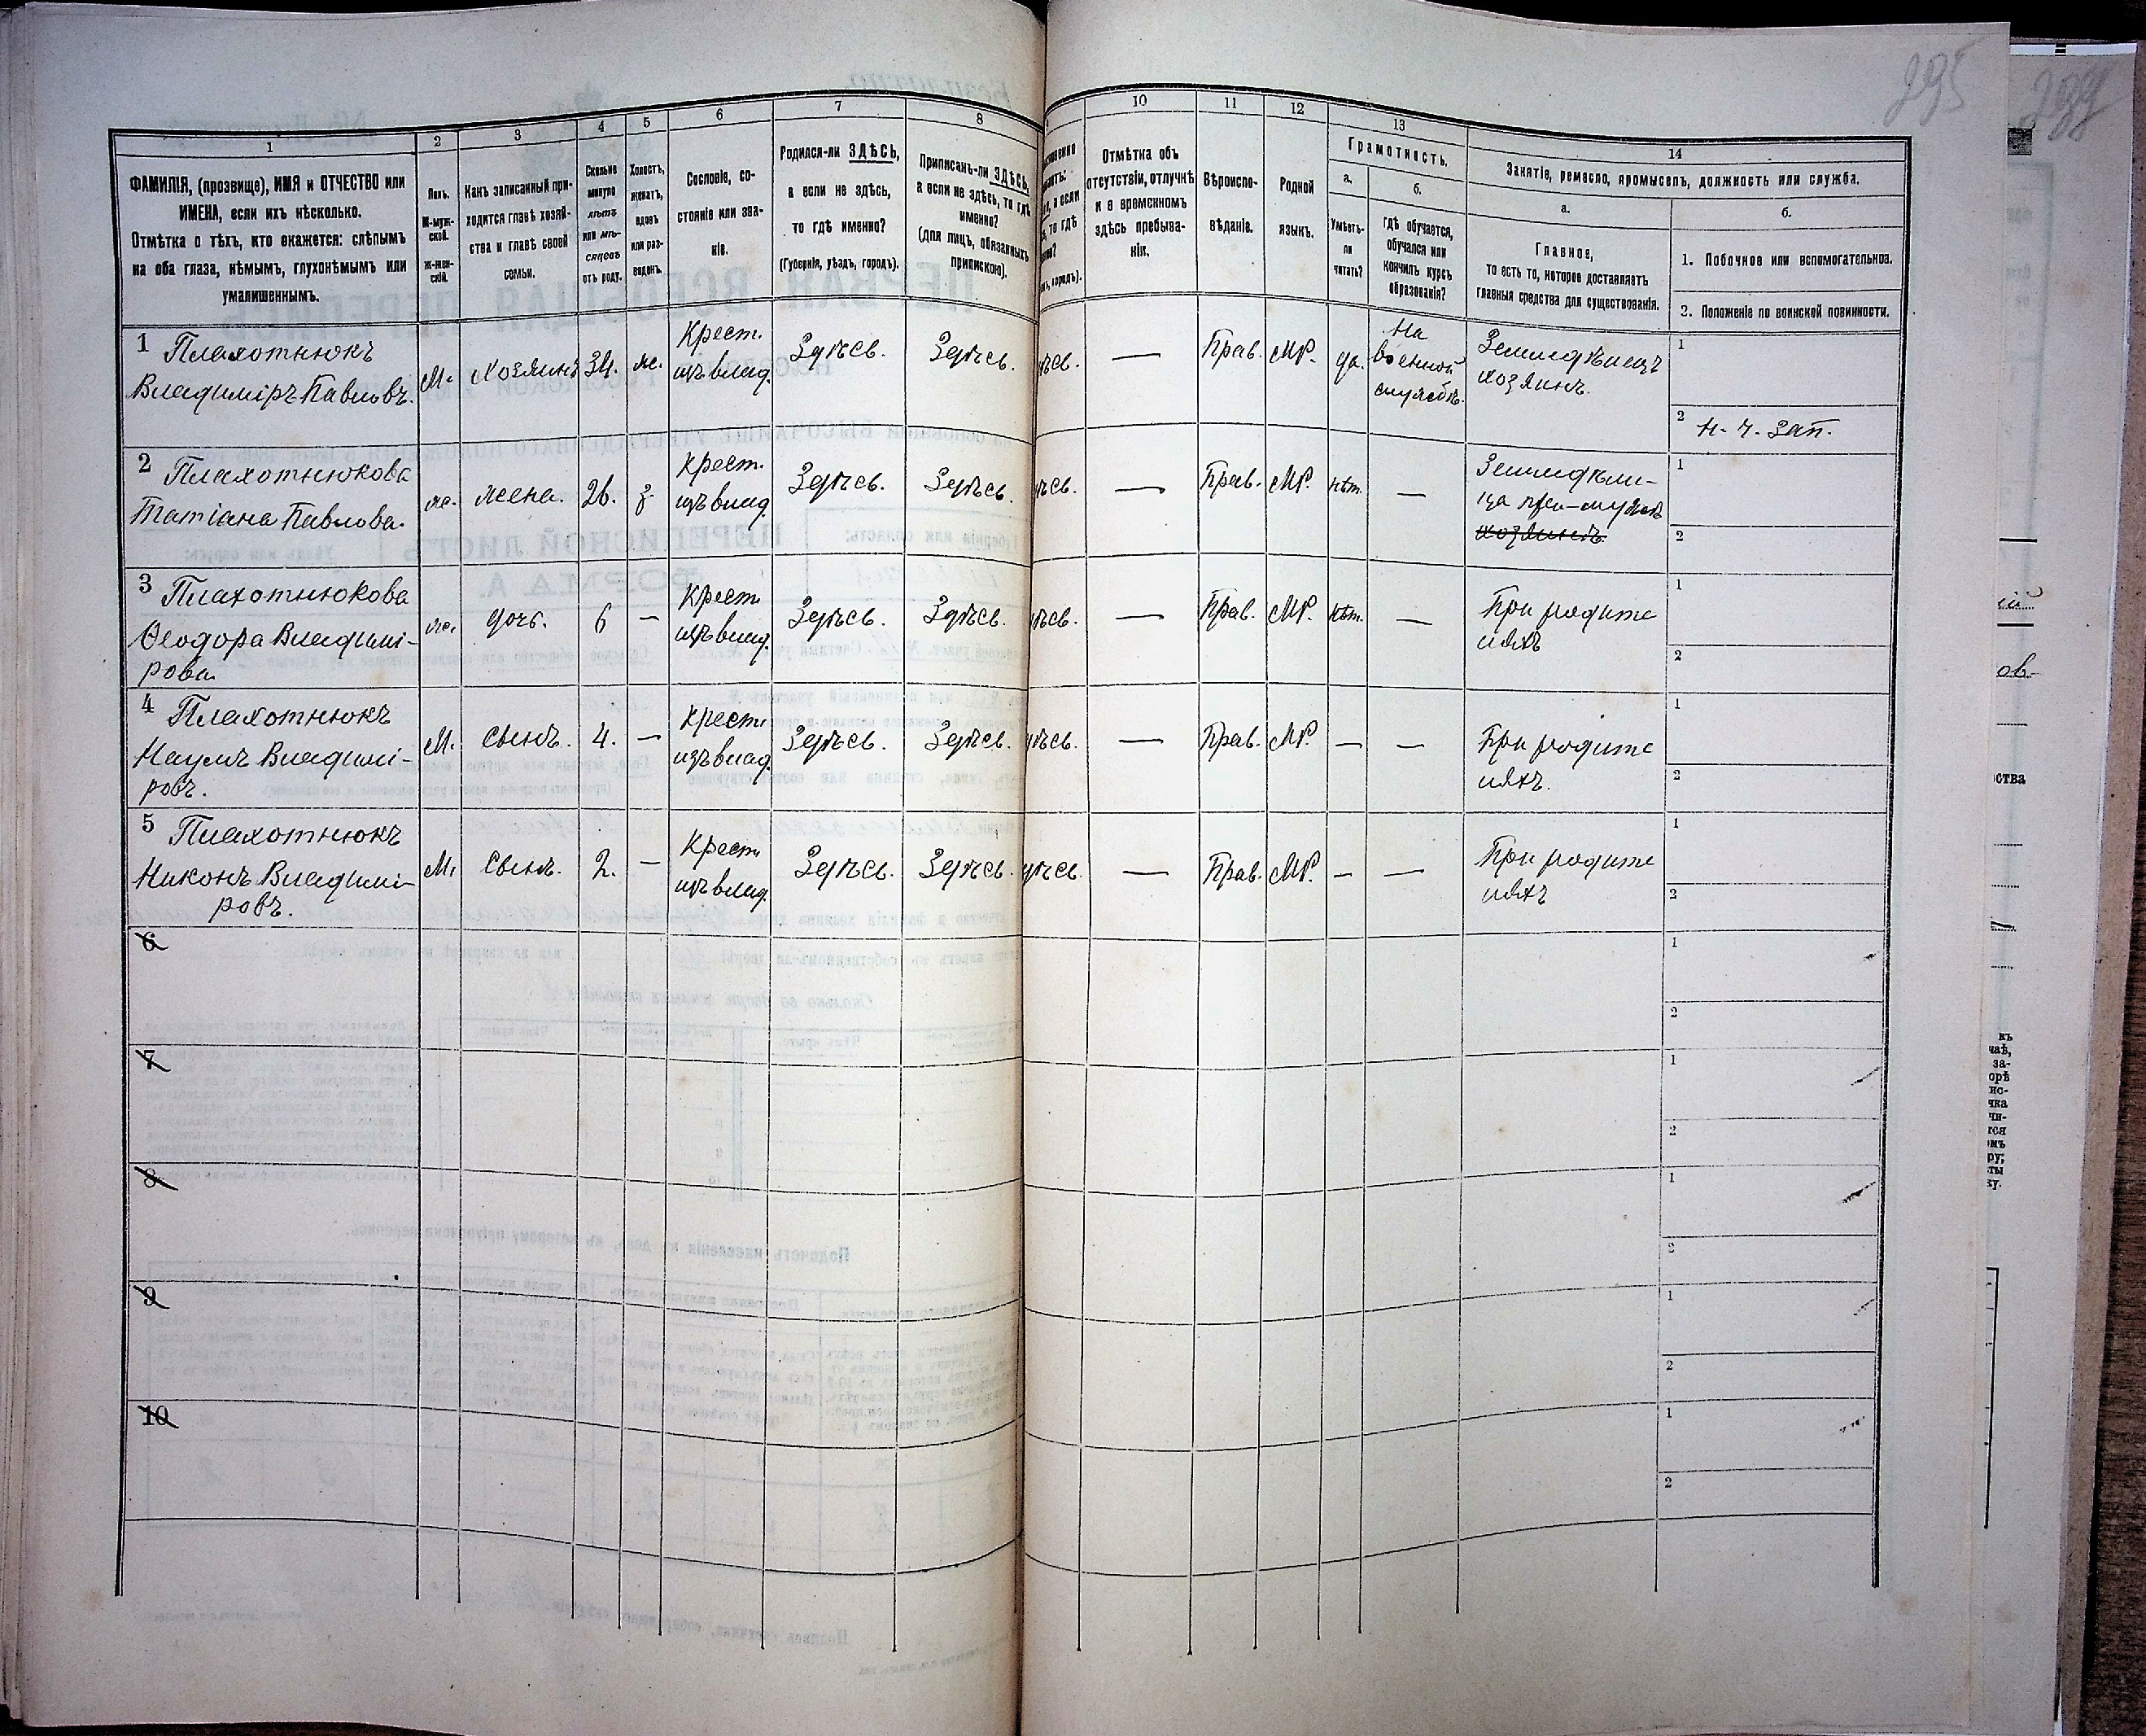 295
1
2
3
4
5
6
7
8
10
11
12
13
14
ФАМИЛІЯ, (прозвище), ИМЯ и ОТЧЕСТВО или
ИМЕНА, если ихъ нѣсколько.
Отмѣтка о тѣхъ, кто окажется: слѣпымъ
на оба глаза, нѣмымъ, глухонѣмымъ или
умалишеннымъ.
Полъ.
М-муж-
ской.
Ж-жен-
скій.
Какъ записанный при-
ходится главѣ хозяй-
ства и главѣ своей
семьи.
Сколько
минуло
лѣтъ
или мѣ-
сяцевъ
отъ роду.
Холостъ,
женатъ,
вдовъ
или раз-
веденъ.
Сословіе, со-
стояніе или зва-
ніе.
Родился-ли ЗДѢСЬ,
а если не здѣсь,
то гдѣ именно?
(Губернія, уѣздъ, городъ).
Приписанъ-ли ЗДѢСЬ,
а если не здѣсь, то гдѣ
именно?
(для лицъ, обязанныхъ
припискою).
Отмѣтка объ
отсутствіи, отлучкѣ
и о временномъ
здѣсь пребыва-
ніи.
Вѣроиспо-
вѣданіе.
Родной
языкъ.
Грамотность.
а.
б.
Умѣетъ-
ли
читать?
гдѣ обучается,
обучался или
кончилъ курсъ
образованія?
Занятіе, ремесло, промыселъ, должность или служба.
а.
б.
Главное,
то есть то, которое доставляетъ
главныя средства для существованія.
1. Побочное или вспомогательное.
2. Положеніе по воинской повинности.
1 Плахотнюкъ
Владиміръ Павловъ.
М. Хозяинъ 34. ж. Крест. изъ влад. Здѣсь. Здѣсь. — Прав. МР. да. На военной службѣ. Земледѣлецъ хозяинъ.
1
2 н. ч. зап.
2 Плахотнюкова
Татіана Павлова.
ж. жена. 26. з. Крест. изъ влад. Здѣсь. Здѣсь. — Прав. МР. нѣт. — Земледѣли-
ца при-мужѣ
1
2
3 Плахотнюкова
Ѳеодора Владимі-
рова.
ж. дочь. 6 — Крест. изъ влад. Здѣсь. Здѣсь. — Прав. МР. нѣт. — При родите
ляхъ
1
2
4 Плахотнюкъ
Наумъ Владимі-
ровъ.
М. Сынъ. 4. — Крест. изъ влад. Здѣсь. Здѣсь. — Прав. МР. — — При родите
ляхъ.
1
2
5 Плахотнюкъ
Никонъ Владимі-
ровъ.
М. Сынъ. 2. — Крест. изъ влад. Здѣсь. Здѣсь. — Прав. МР. — — При родите
ляхъ
1
2
6
1
2
7
1
2
8
1
2
9
1
2
10
1
2